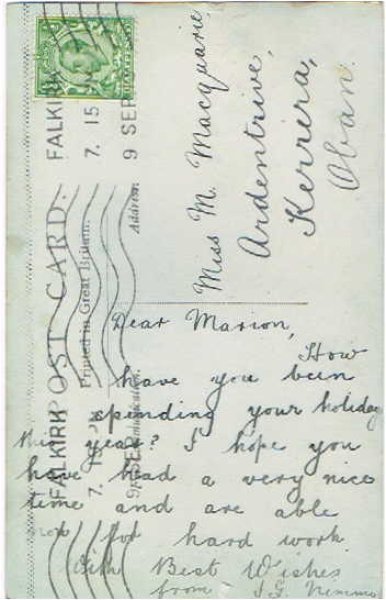 POST CARD.
Printed in Great Britain.
Address.
FALKIRK
7. 15
9 SEP
FALKIRK
7. 15
9 SEP
Miss M. Macquarie,
Ardentrive,
Kerrera,
Oban.
Dear Marion,
How
have you been
spending your holiday
this year? I hope you
have had a very nice
time and are able
now for hard work
With Best Wishes
from J. Nimmo